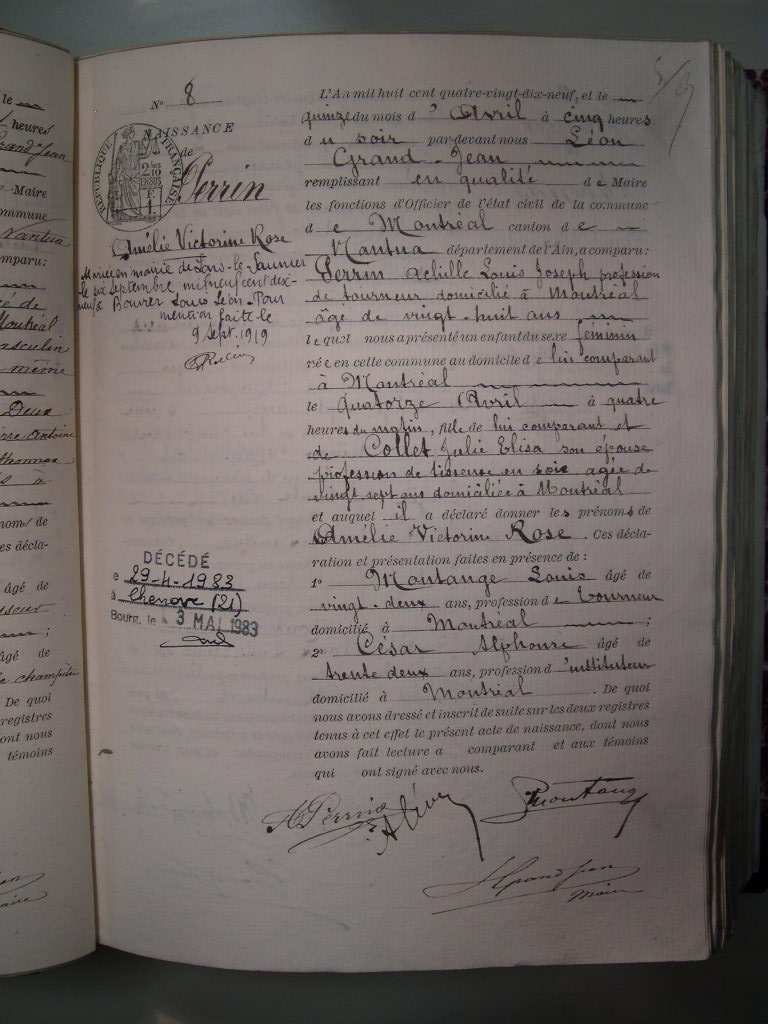 le
heures
Grand-Jean
Maire
commune
Nantua
comparu:
cé de
Montréal
masculin
même
Deux
Antoine
Oyonnax
à
prénoms de
Ces décla-
âgé de
;
âgé de
champêtre
De quoi
registres
dont nous
témoins
N° 8
NAISSANCE
de
REPUBLIQUE FRANÇAISE
Perrin
Amélie Victorine Rose
Mairie de Lons-le-Saunier
le six septembre mil neuf cent dix-
neuf à Bourrer Louis Léon. Pour
mention faite le
9 sept. 1919
DÉCÉDÉ
le 29-4-1983
à Chenove (21)
Bourg, le 3 MAI 1983
L'An mil huit cent quatre-vingt-dix-neuf, et le
quinze du mois d'Avril à cinq heures
du soir par-devant nous Léon
Grand-Jean
remplissant en qualité de Maire
les fonctions d'Officier de l'état civil de la commune
de Montréal canton de
Nantua département de l'Ain, a comparu:
Perrin Achille Louis Joseph profession
de tourneur domicilié à Montréal
âgé de vingt-huit ans
lequel nous a présenté un enfant du sexe féminin
née en cette commune au domicile de lui comparant
à Montréal
le quatorze Avril à quatre
heures du matin, fille de lui comparant et
de Collet Julie Elisa son épouse
profession de tisseuse en soie agée de
vingt sept ans domiciliée à Montréal
et auquel il a déclaré donner les prénoms de
Amélie Victorine Rose. Ces décla-
ration et présentation faites en présence de :
1° Montange Louis âgé de
vingt-deux ans, profession de tourneur
domicilié à Montréal ;
2° César Alphonse âgé de
trente deux ans, profession d'instituteur
domicilié à Montréal. De quoi
nous avons dressé et inscrit de suite sur les deux registres
tenus à cet effet le présent acte de naissance, dont nous
avons fait lecture à comparant et aux témoins
qui ont signé avec nous.
A Perrin
Montange
L Grandjean
Maire